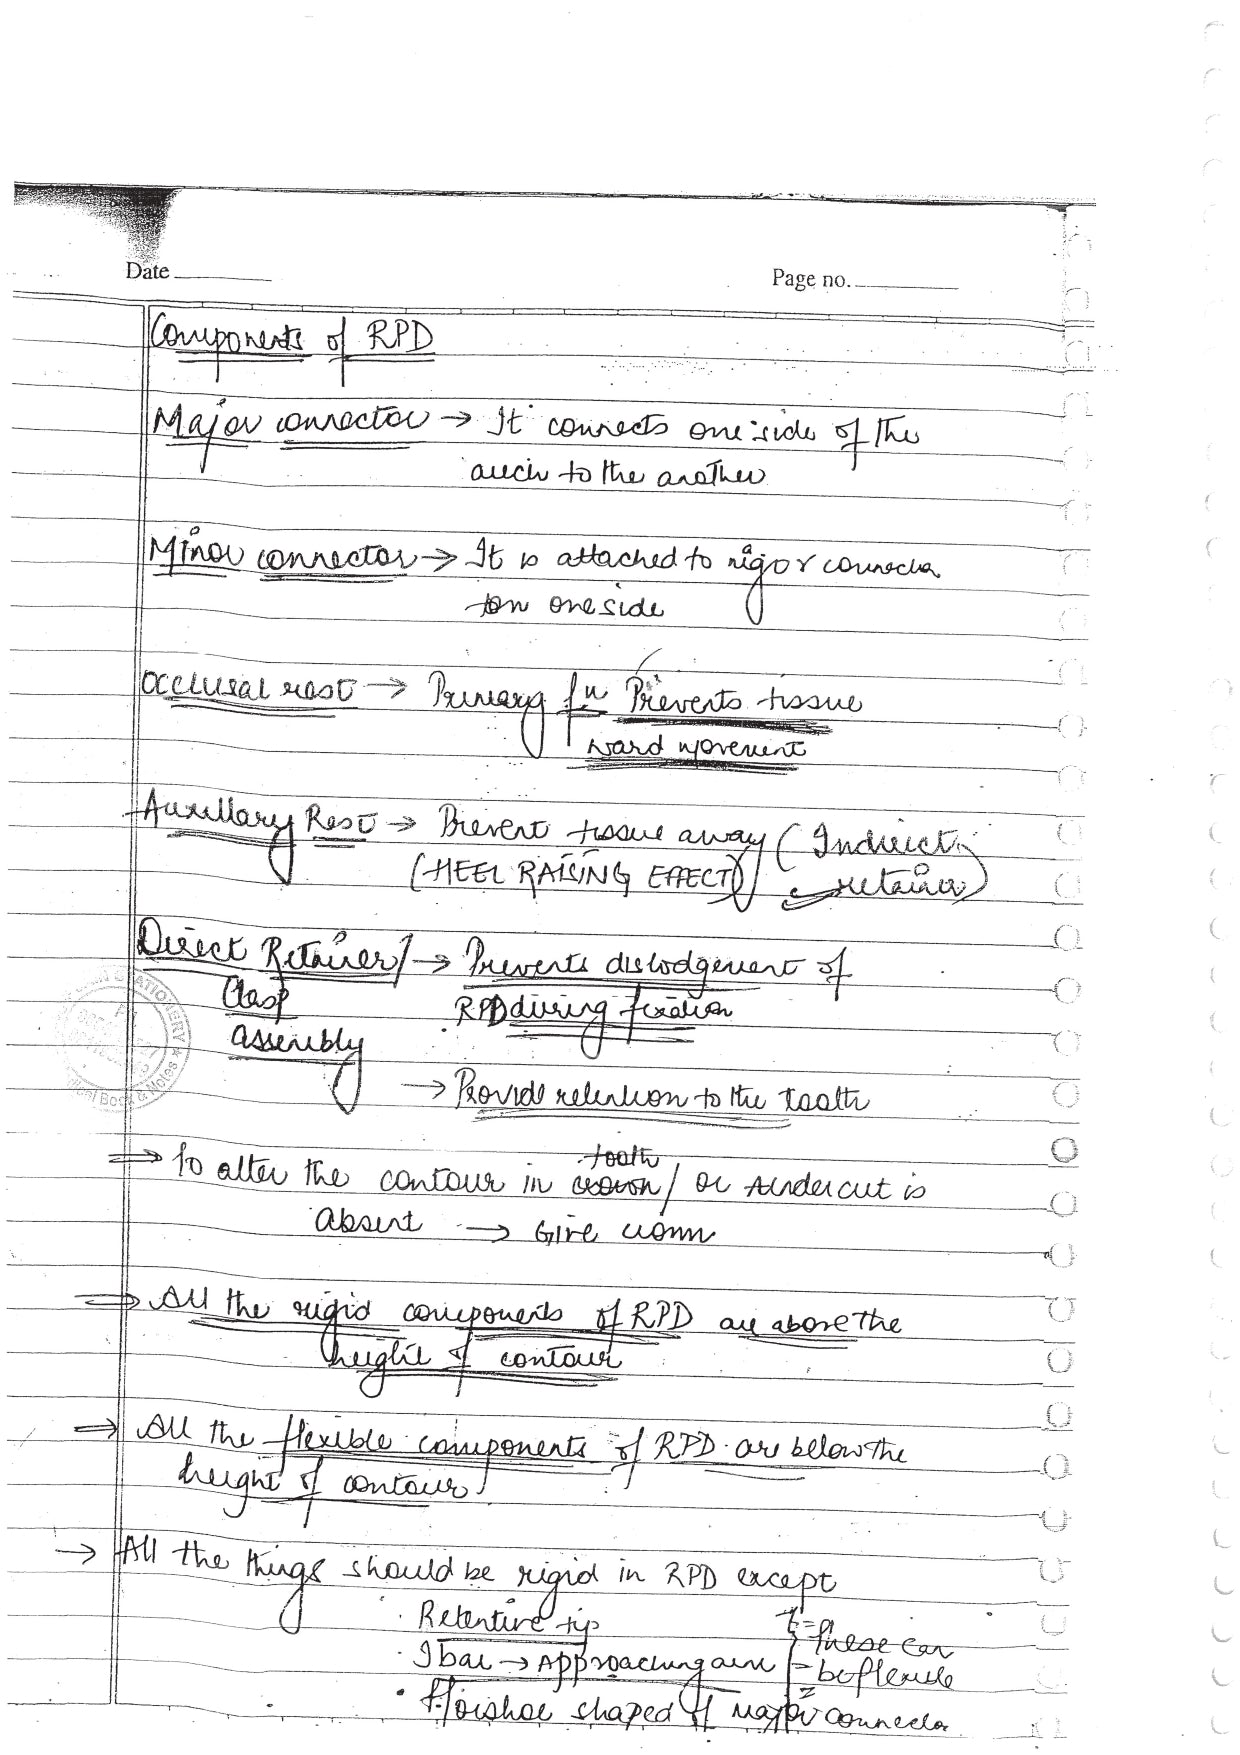 Date
Page no.
Components of RPD
Major connector → It connects one side of the
arch to the another
Minor connector → It is attached to connector
on one side
Occlusal rest → Primary fn Prevents tissue
ward movement
Auxillary Rest → Prevent tissue away (Indirect
(HEEL RAISING EFFECT) retainer)
Direct Retainer/ → Prevents dislodgement of
Clasp RPD during fixation
assembly
→ Provide retention to the tooth
⇒ To alter the contour in tooth / or undercut is
absent → Give crown
⇒ All the rigid components of RPD are above the
height of contour
⇒ All the flexible components of RPD are below the
height of contour
→ All the things should be rigid in RPD except
· Retentive tip these can
· I bar → Approaching arm be flexible
· shaped of Major connector